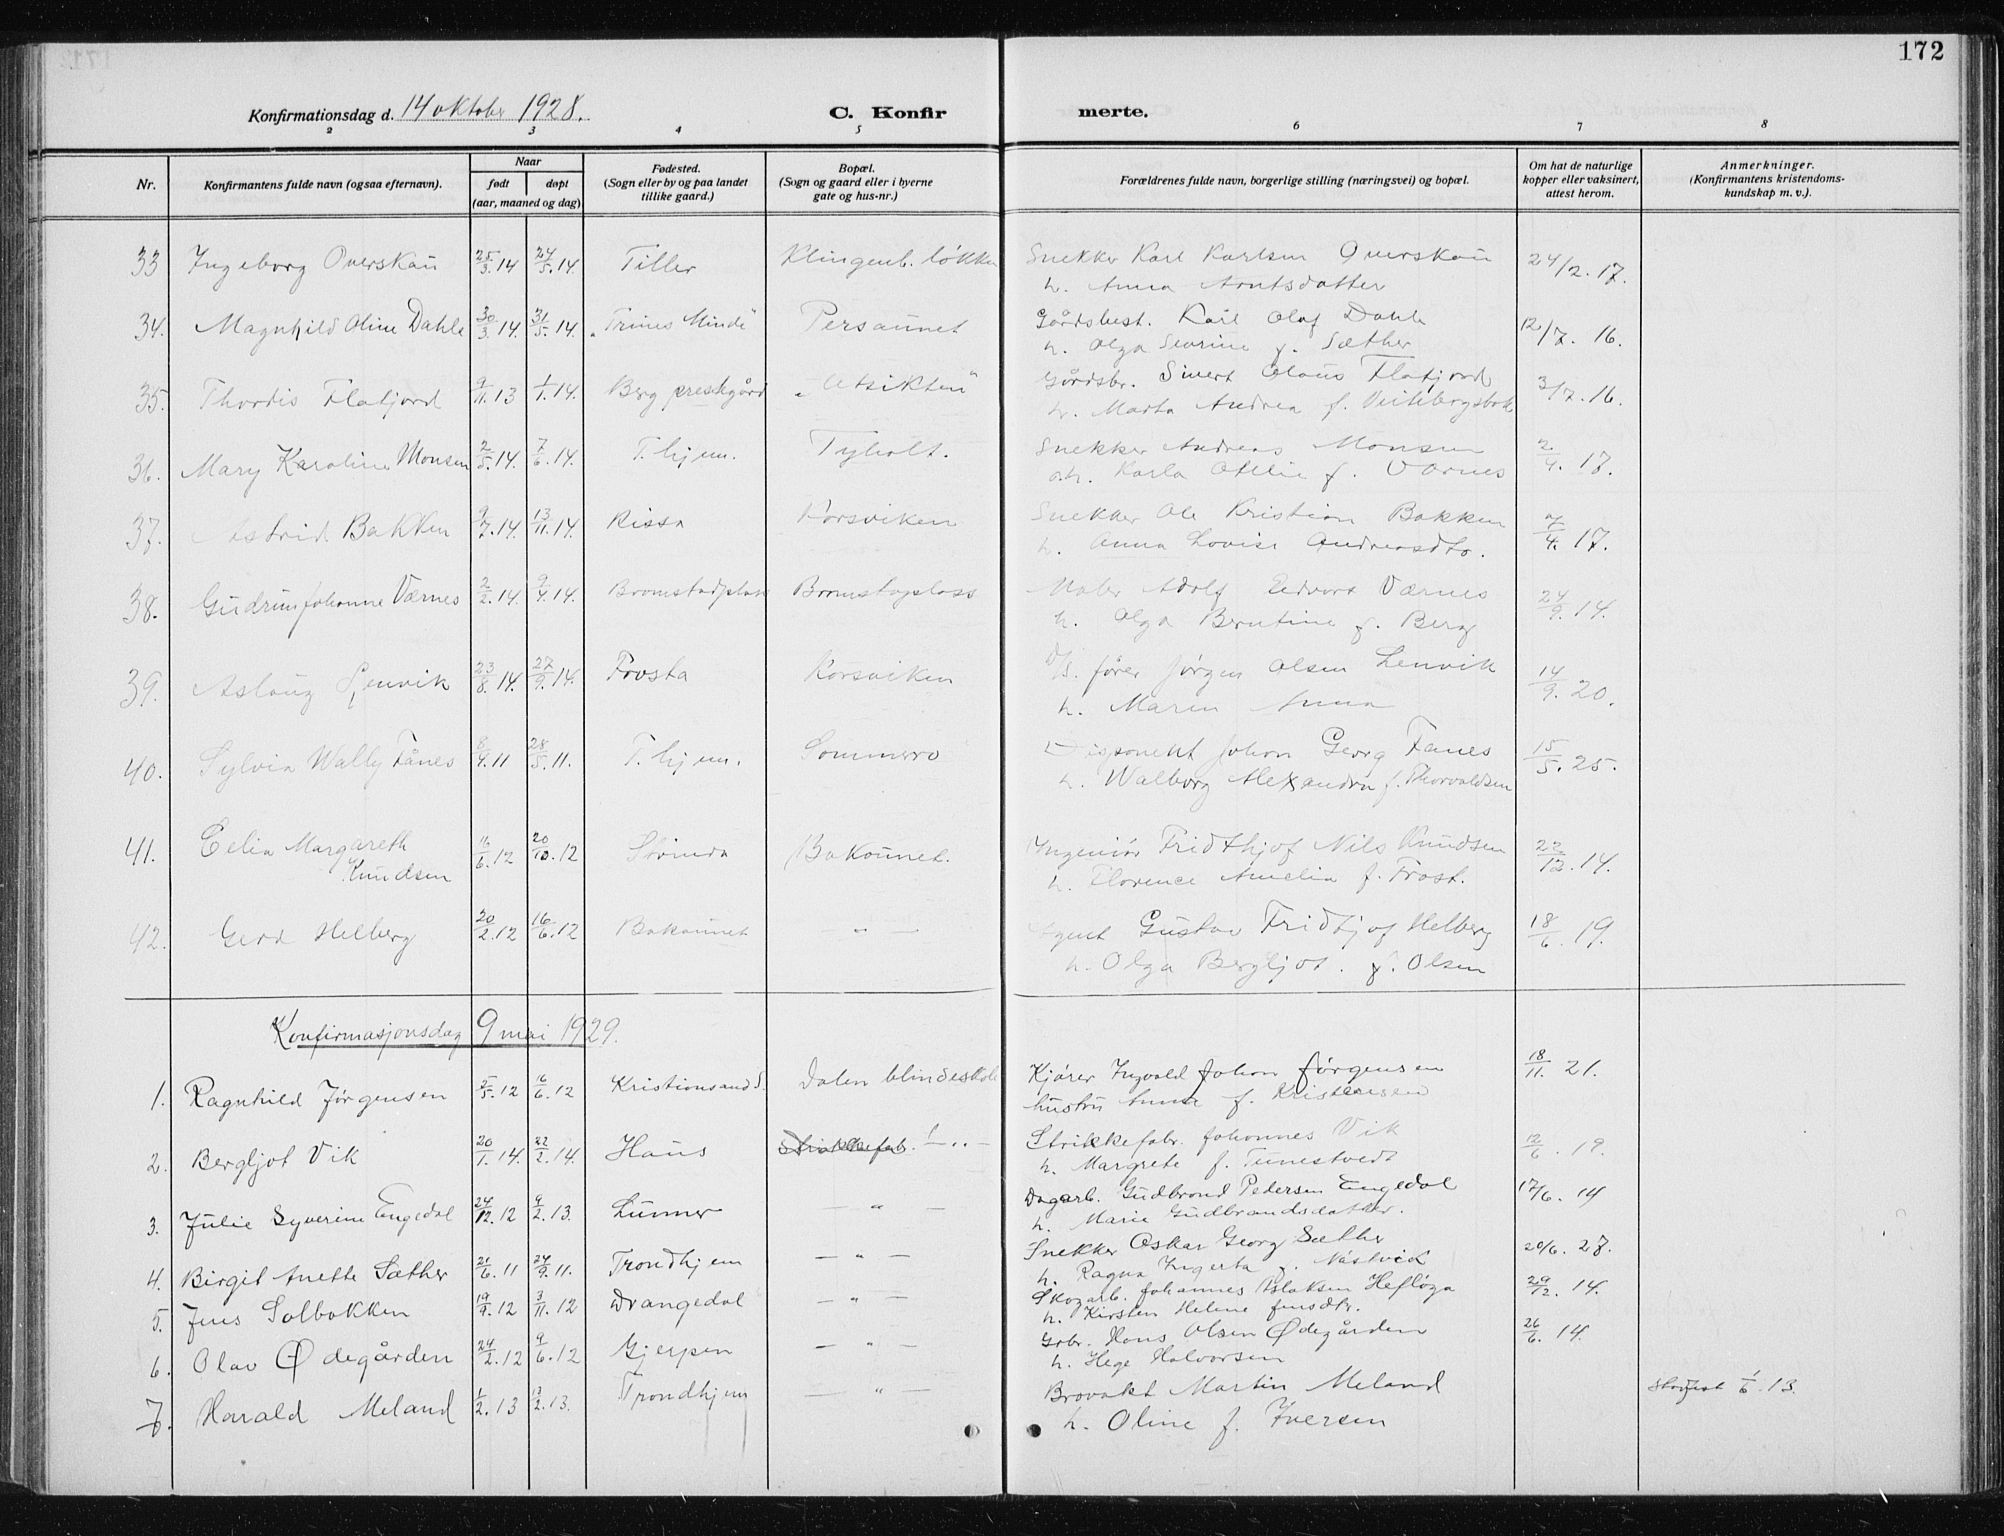 172
Konfirmationsdag d. 14 oktober 1928.
C. Konfirmerte.
2 3 4 5 6 7 8
Nr.
Konfirmantens fulde navn (ogsaa efternavn).
Naar
født døpt
(aar, maaned og dag)
Fødested.
(Sogn eller by og paa landet
tillike gaard.)
Bopæl.
(Sogn og gaard eller i byerne
gate og hus-nr.)
Forældrenes fulde navn, borgerlige stilling (næringsvei) og bopæl.
Om hat de naturlige
kopper eller vaksinert,
attest herom.
Anmerkninger.
(Konfirmantens kristendoms-
kundskap m. v.).
33 Ingeborg Overskau 25/3.14 24/5.14. Tiller Klingenb. løkke Snekker Karl Karlsen Overskau 24/2.17.
h. Anna Arntsdatter
34. Magnhild Oline Dahle 30/3.14 31/5.14. "Trines Minde" Persaunet Gårdsbest. Karl Olaf Dahle 12/7. 16.
h. Olga Sevrine f. Sæther
35. Thordis Flatjord 9/11.13 1/1.14. Berg prestgård "Utsikten" Gårdsbr. Sivert Olaus Flatjord 3/7.16.
h. Marta Andrea f.
36. Mary Karoline Monsen 2/5.14. 7/6.14. T.hjem. Tyholt. Snekker Andreas Monsen 2/4.17.
h. Karla Otelie f. Værnes
37. Astrid Bakken 9/7.14. 13/11.14. Rissa Korsviken Snekker Ole Kristian Bakken 2/4.17.
h. Anna Lovise Andreasdtr.
38. Gudrun Johanne Værnes 2/2.14. 9/4.14. Bromstadplass Bromstaplass Maler Adolf Edvart Værnes 24/9.14.
h. Olga Berntine f. Berg
39. Aslaug Lenvik 23/8.14. 27/9.14. Frosta Korsviken D/S. fører Jørgen Olsen Lenvik 14/9.20.
h. Maren Anna
40. Sylvia Wally Fånes 8/4.11 28/5.11. T.hjem. Sommero Disponent Johan Georg Fanes 15/5.25.
h. Walborg Alexandra f. Thorvaldsen
41. Celia Margareth 16/6.12 20/10.12 Strinda Bakaunet. Ingeniør Fridthjof Nils Knudsen 22/12.14.
Knudsen h. Florence Amelia f. Frost.
42. Gerd Helberg 20/2.12 16/6.12 Bakaunet — " — Agent Gustav Fridthjof Helberg 18/6.19.
h. Olga Bergljot. f. Olsen
Konfirmasjonsdag 9 mai 1929.
1. Ragnhild Jørgensen 5/5.12 16/6.12 Kristiansand S. Dalen blindeskole Kjører Ingvald Johan Jørgensen 18/11.21.
hustru Anna f. Kristensen
2. Bergljot Vik 20/1.14. 22/2.14. Haus Strikkefab. — " — Strikkefabr. Johannes Vik 12/6.19.
h. Margrete f. Tunestvedt
3. Julie Syverine Engedal 24/12.12 9/2.13. Lunner — " — Dagarb. Gudbrand Pedersen Engedal 17/6.14
h. Marie Gudbrandsdatter.
4. Birgit Anette Sæther 21/6.11 24/9.11. Trondhjem — " — Snekker Oskar Georg Sæther 20/6.27.
h. Ragna Ingerta f. Nåstvick
5. Jens Solbakken 19/9.12 3/11.12 Drangedal — " — Skogarb. Johannes Aslaksen Hefløga 29/12.14.
h. Kirsten Helene Jensdtr.
6. Olav Ødegården 24/2.12 9/6.12 Gjerpen — " — Grbr. Hans Olsen Ødegården 26/6.14.
h. Hege Halvorsen
7. Harald Meland 1/2.13 13/2.13. Trondhjem — " — Brovakt Martin Meland 1/6.13.
h. Oline f. Iversen